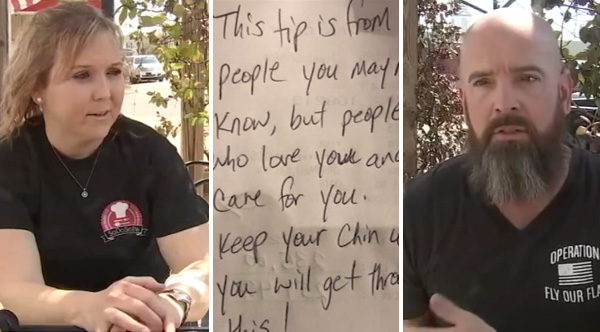 This tip is from
people you may
know, but people
who love you and
care for you.
Keep your chin u
you will get thro
this!
OPERATION
FLY OUR FLA